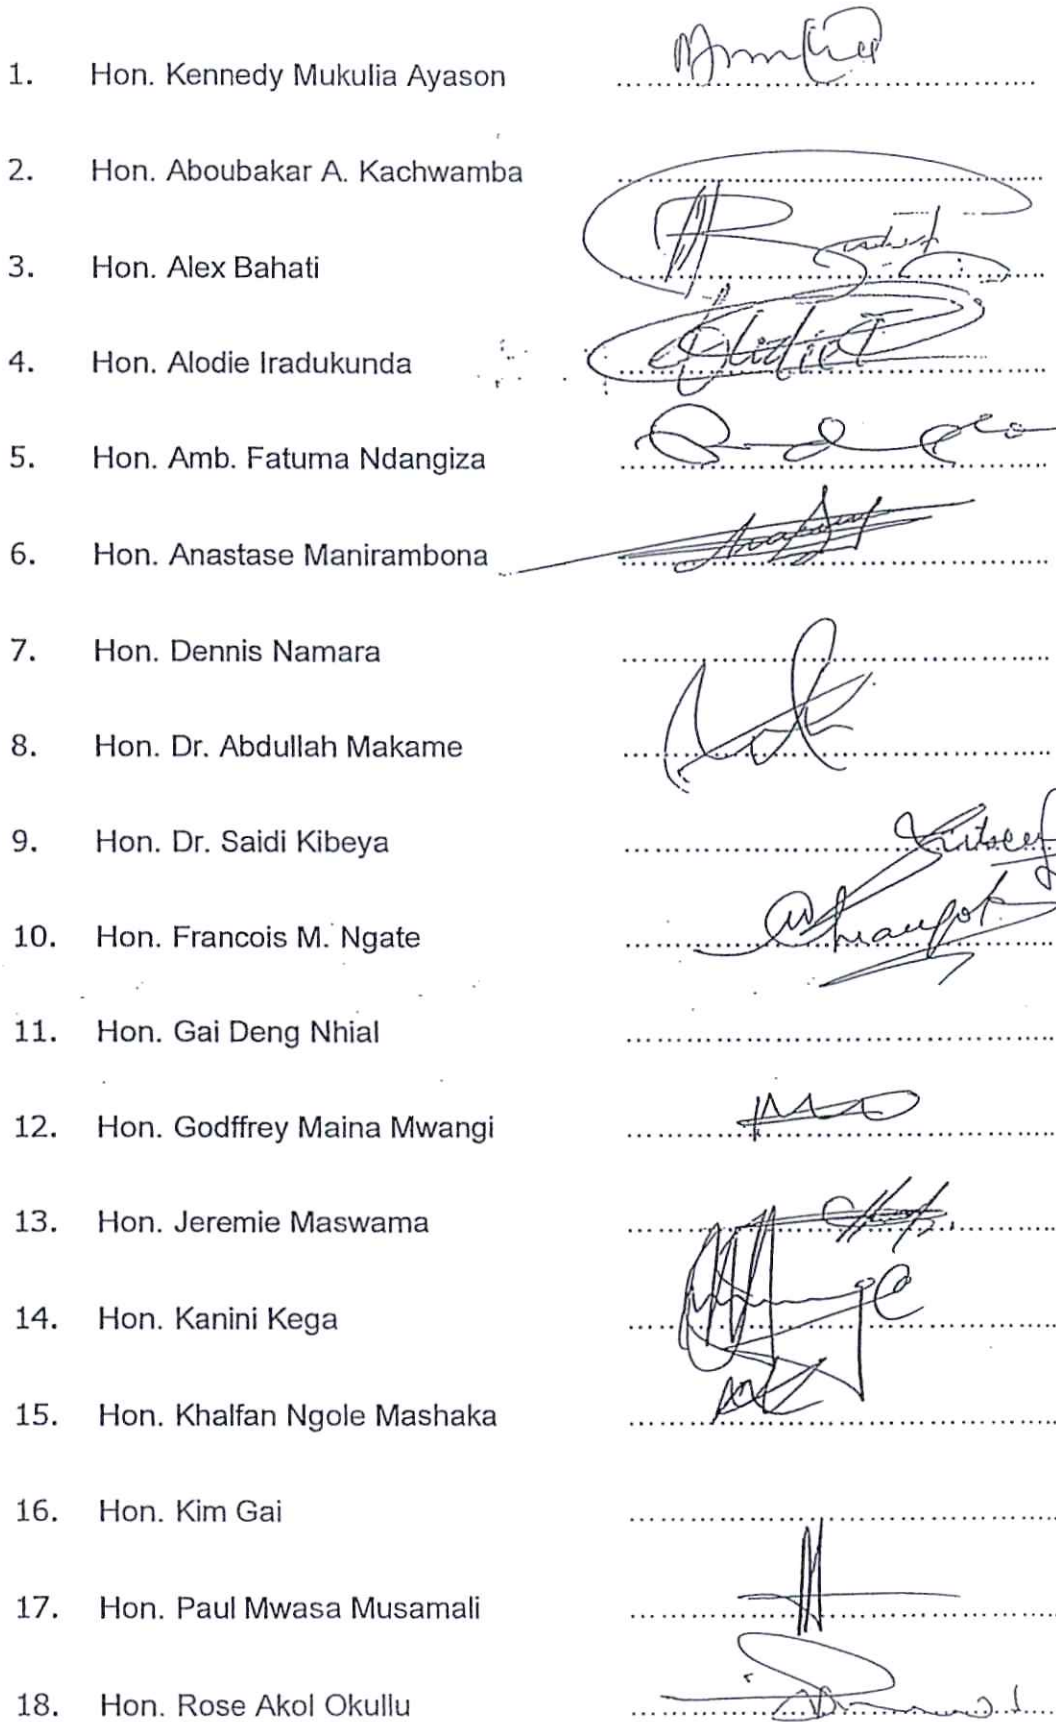 1. Hon. Kennedy Mukulia Ayason ........................................
2. Hon. Aboubakar A. Kachwamba ........................................
3. Hon. Alex Bahati ........................................
4. Hon. Alodie Iradukunda ........................................
5. Hon. Amb. Fatuma Ndangiza ........................................
6. Hon. Anastase Manirambona ........................................
7. Hon. Dennis Namara ........................................
8. Hon. Dr. Abdullah Makame ........................................
9. Hon. Dr. Saidi Kibeya ........................................
10. Hon. Francois M. Ngate ........................................
11. Hon. Gai Deng Nhial ........................................
12. Hon. Godffrey Maina Mwangi ........................................
13. Hon. Jeremie Maswama ........................................
14. Hon. Kanini Kega ........................................
15. Hon. Khalfan Ngole Mashaka ........................................
16. Hon. Kim Gai ........................................
17. Hon. Paul Mwasa Musamali ........................................
18. Hon. Rose Akol Okullu ........................................